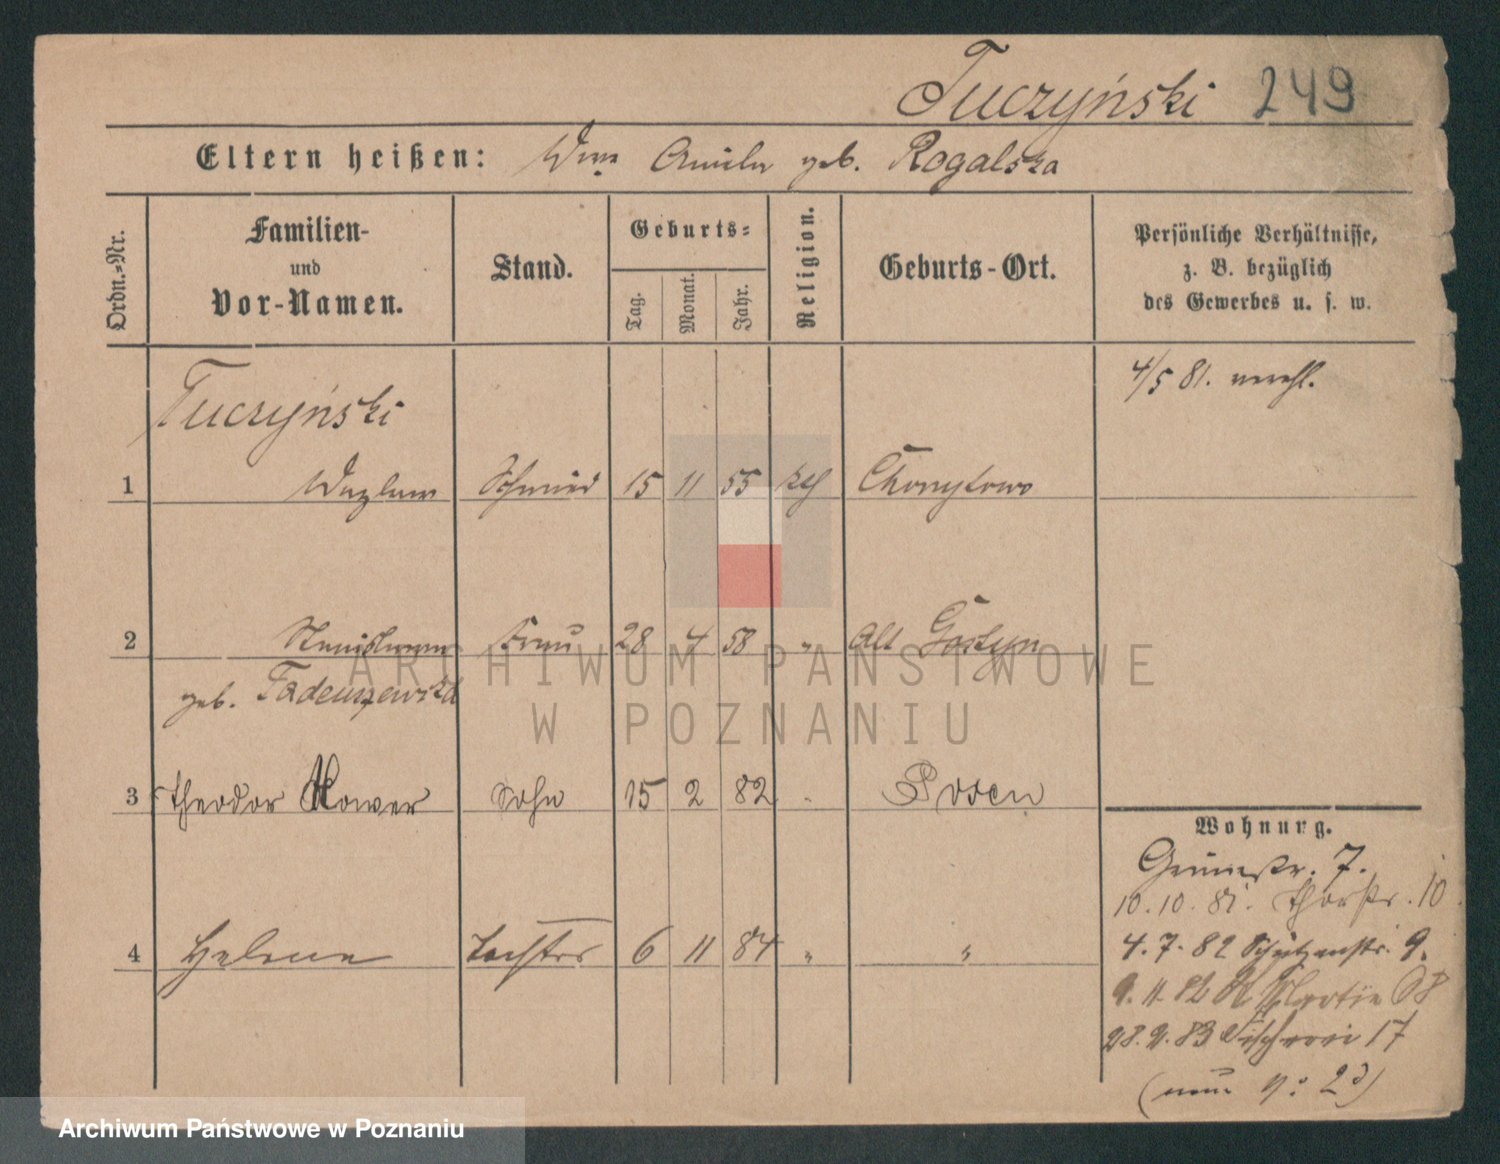 Tuczyński 249
Eltern heißen: Wwe Amilie geb. Rogalska
Ordn.-Nr.
Familien-
und
Vor-Namen.
Stand.
Geburts-
Tag. Monat. Jahr.
Religion.
Geburts-Ort.
Persönliche Verhältnisse,
z. B. bezüglich
des Gewerbes u. s. w.
4/5 81. verehl.
Tuczyński
1 Wazlaw Schmied 15 11 55 kth
2 Stanislawa Frau 28 4 58 " Alt Gostyn
geb. Tadeuszewska
3 Theodor Sohn 15 2 82 " Posen
Wohnung.
7.
4 Helene Tochter 6 11 84 " "
10.10.81. Thorstr. 10
4.7.82 Schützenstr. 9.
9.11.82 St Martin 68
83 Fischerei 17
(neue No 23)
ARCHIWUM PAŃSTWOWE
W POZNANIU
Archiwum Państwowe w Poznaniu